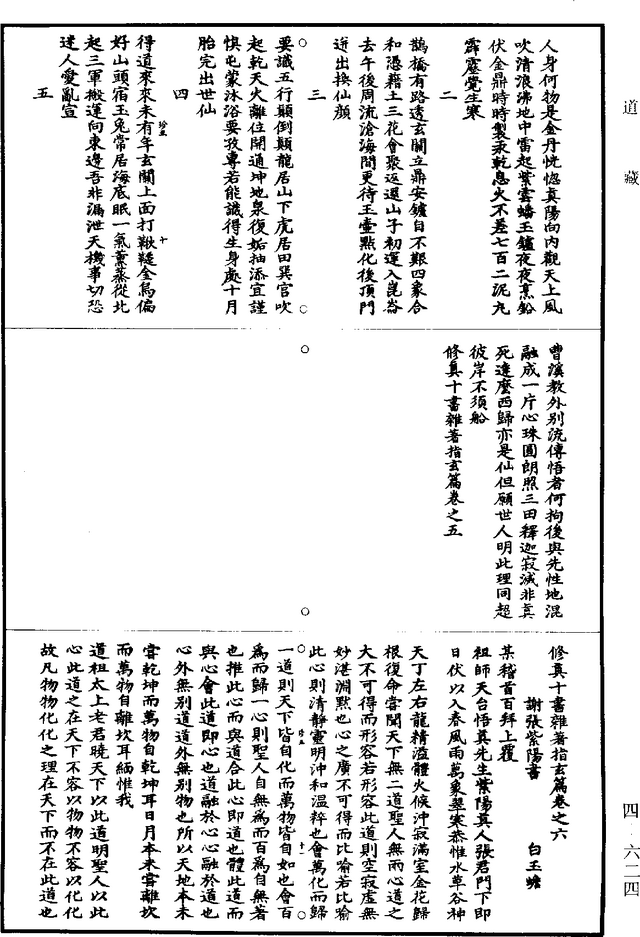 道藏
人身何物是金丹恍惚真陽向內觀天上風
吹清浪沸地中雷起紫雲蟠玉鑪夜夜烹鉛
伏金鼎時時製汞乾息火不差七百二泥丸
霹靂覺生寒
二
鵲橋有路透玄關立鼎安鑪自不難四象合
和憑藉土三花會聚返還山子初運入崑崙
去午後周流滄海間更待玉壺點化後頂門
迸出換仙顏
三
要識五行顛倒顛龍居山下虎居田巽宮吹
起乾天火離位開通坤地泉復姤抽添宜謹
慎屯蒙沐浴要孜專若能識得生身處十月
胎完出世仙
四
得道來來未有年玄關上面打鞦韆金烏偏
好山頭宿玉兔常居海底眠一氣薰蒸從北
起三軍搬運向東邊吾非漏泄天機事切恐
迷人愛亂宣
五
珍五
十
曹溪教外別流傳悟者何拘後與先性地混
融成一片心珠圓朗照三田釋迦寂滅非真
死達麼西歸亦是仙但願世人明此理同超
彼岸不須船
修真十書雜著指玄篇卷之五
修真十書雜著指玄篇卷之六
謝張紫陽書 白玉蟾
某稽首百拜上覆
祖師天台悟真先生紫陽真人張君門下即
日伏以入春風雨萬象翠寒恭惟水草谷神
天丁左右龍精溢體火候沖寂滿室金花歸
根復命嘗聞天下無二道聖人無兩心道之
大不可得而形容若形容此道則空寂虛無
妙湛淵默也心之廣不可得而比喻若比喻
此心則清靜靈明沖和溫粹也會萬化而歸
一道則天下皆自化而萬物皆自如也會百
為而歸一心則聖人自無為而百為自無著
也推此心而與道合此心即道也體此道而
與心會此道即心也道融於心心融於道也
心外無別道道外無別物也所以天地本未
嘗乾坤而萬物自乾坤耳日月本未嘗離坎
而萬物自離坎耳緬惟我
道祖太上老君曉天下以此道明聖人以此
心此道之在天下不容以物物不容以化化
故凡物物化化之理在天下而不在此道也
珍五
十一
四·六二四